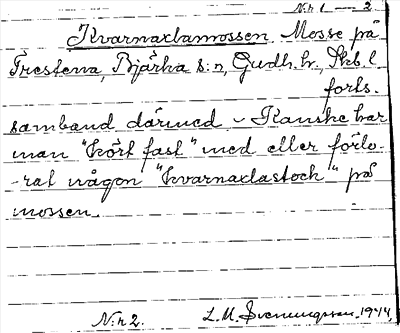 N:r 1 — 2.
Kvarnaxlamossen. Mosse på
Trestena, Bjärka s:n, Gudh. hr., Skb. l.
forts.
samband därmed - Kanske har
man "kört fast" med eller förlo-
-rat någon "kvarnaxlastock" på
mossen.
N:r 2. L. M. Svenungsson. 1944.